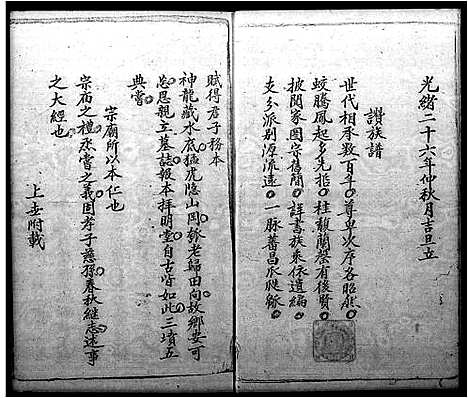 光緒二十六年仲秋月吉旦立
讚族譜
世代相承数百年尊卑次序各昭然
蛟騰鳳起多先哲桂馥蘭馨有後賢
披閱家图宗舊簡詳書族系依遺編
支分派別源流遠一脉蕃昌瓜瓞緜
賦得君子務本
神龍藏水底猛虎隐山岡老歸田向故鄉要可
忽思親立墓誌報本拜明堂自古皆如此三墳五
典嘗
宗廟所以本仁也
宗庙之禮烝嘗之義因孝子慈孫春秋继志述事
之大經也
上世附載